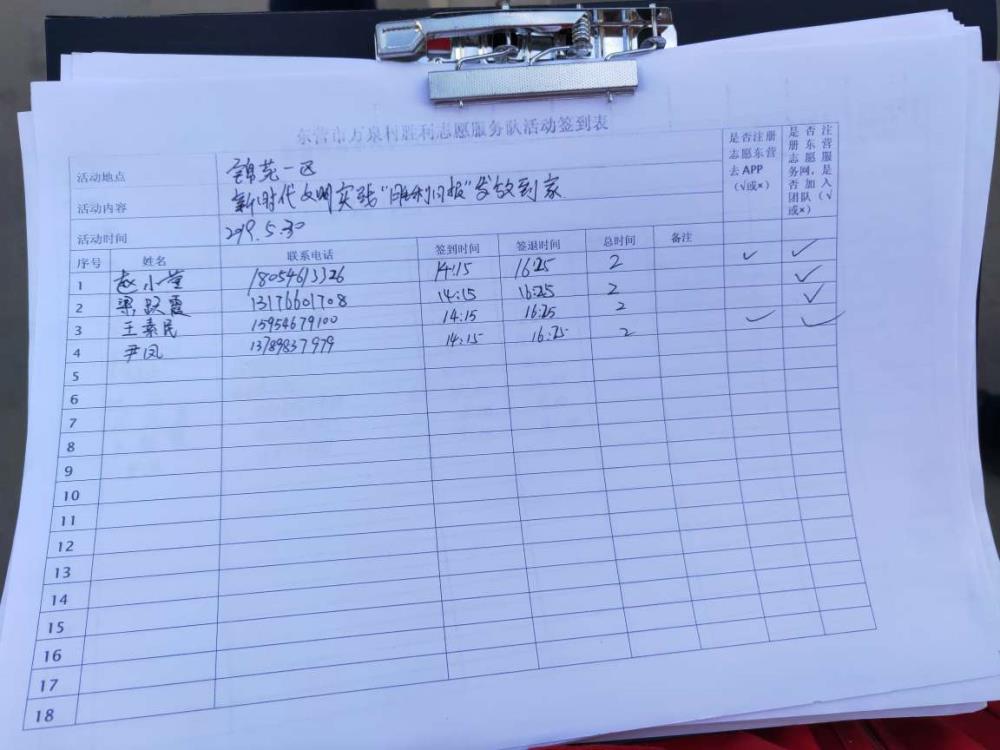 东营市万泉村胜利志愿服务队活动签到表
活动地点 锦苑一区
活动内容 新时代文明实践“胜利日报”发放到家
活动时间 2019.5.30
是否注册志愿东营去APP（√或×）
是否注册东营志愿服务网，是否加入团队（√或×）
序号 姓名 联系电话 签到时间 签退时间 总时间 备注
1 赵小莹 18054613326 14:15 16:25 2 ✓ ✓
2 梁跃霞 13176601708 14:15 16:25 2 ✓
3 王素民 15954679100 14:15 16:25 2 ✓
4 尹凤 13789837979 14:15 16:25 2 ✓ ✓
5
6
7
8
9
10
11
12
13
14
15
16
17
18